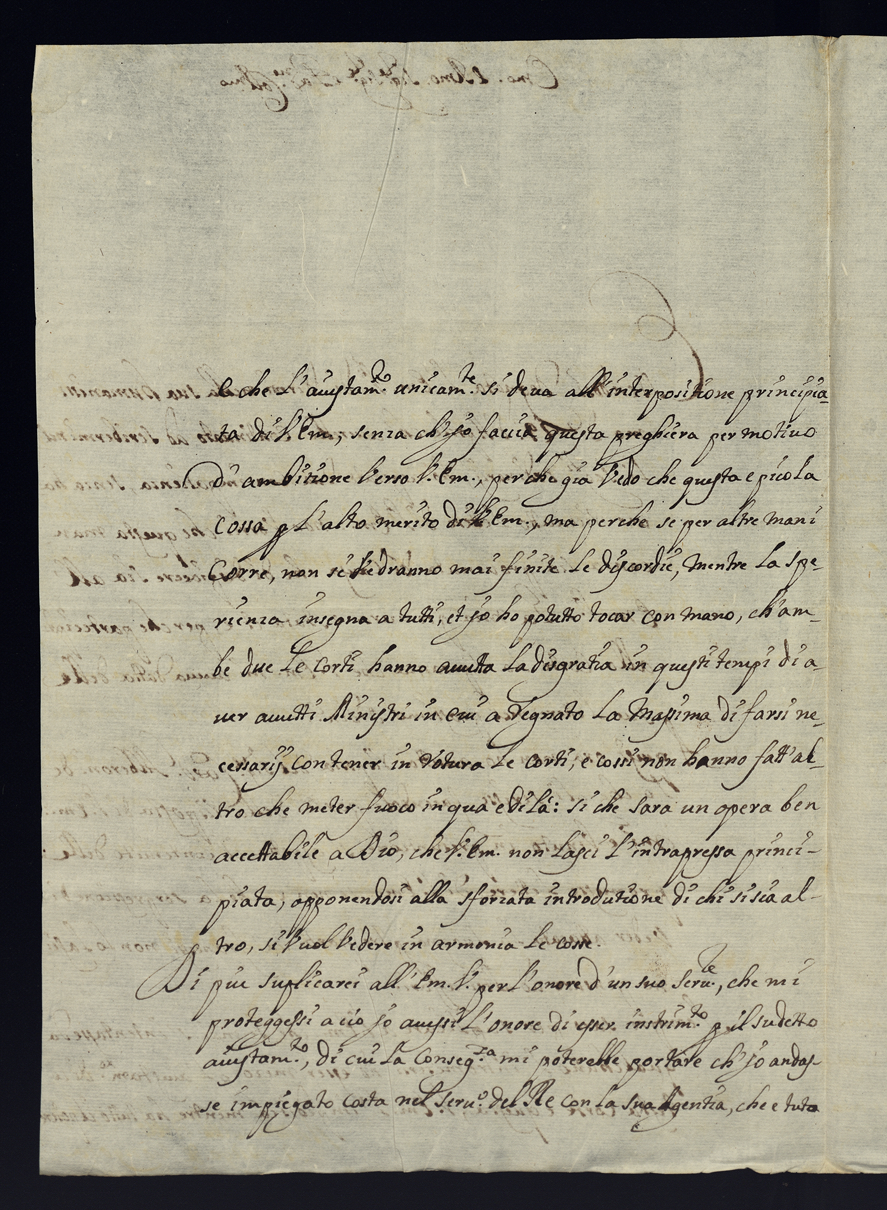 e che l'aiustam.to unicam.te si deva all'interpositione principia-
ta di V. Em., senza ch'jo faccia questa preghiera per motivo
di ambitione verso V. Em., perche gia vedo che questa e picola
cossa p l'alto merito di V. Em., ma perche se per altre mani
corre, non si vedranno mai finite le discordie, mentre la spe-
rienza insegna a tutti, et jo ho potutto tocar con mano, ch'am-
be due le Corti, hanno avutta la disgratia in questi tempi di a-
ver avutti Ministri in cui a regnato la Massima di farsi ne-
cessarij con tener in rotura le Corti, e cossi non hanno fatt'al-
tro che meter fuoco in qua e di là: si che sara un opera ben
accettabile a Dio, che V. Em. non lasci l'intrapressa princi-
piata, opponendosi alla sforzata introdutione di chi si sia al-
tro, si vuol vedere in armonia le cosse.
Di piu suplicarei all'Em. V. per l'onore d'un suo serv.te, che mi
proteggessi a ciò jo avessi l'onore di esser instrum.to p il sudetto
aiustam.to, di cui la conseg.za mi poterebbe portare ch'jo andas-
se impiegato costa nel serv.o del Re con la sua Agentia, che e tuta